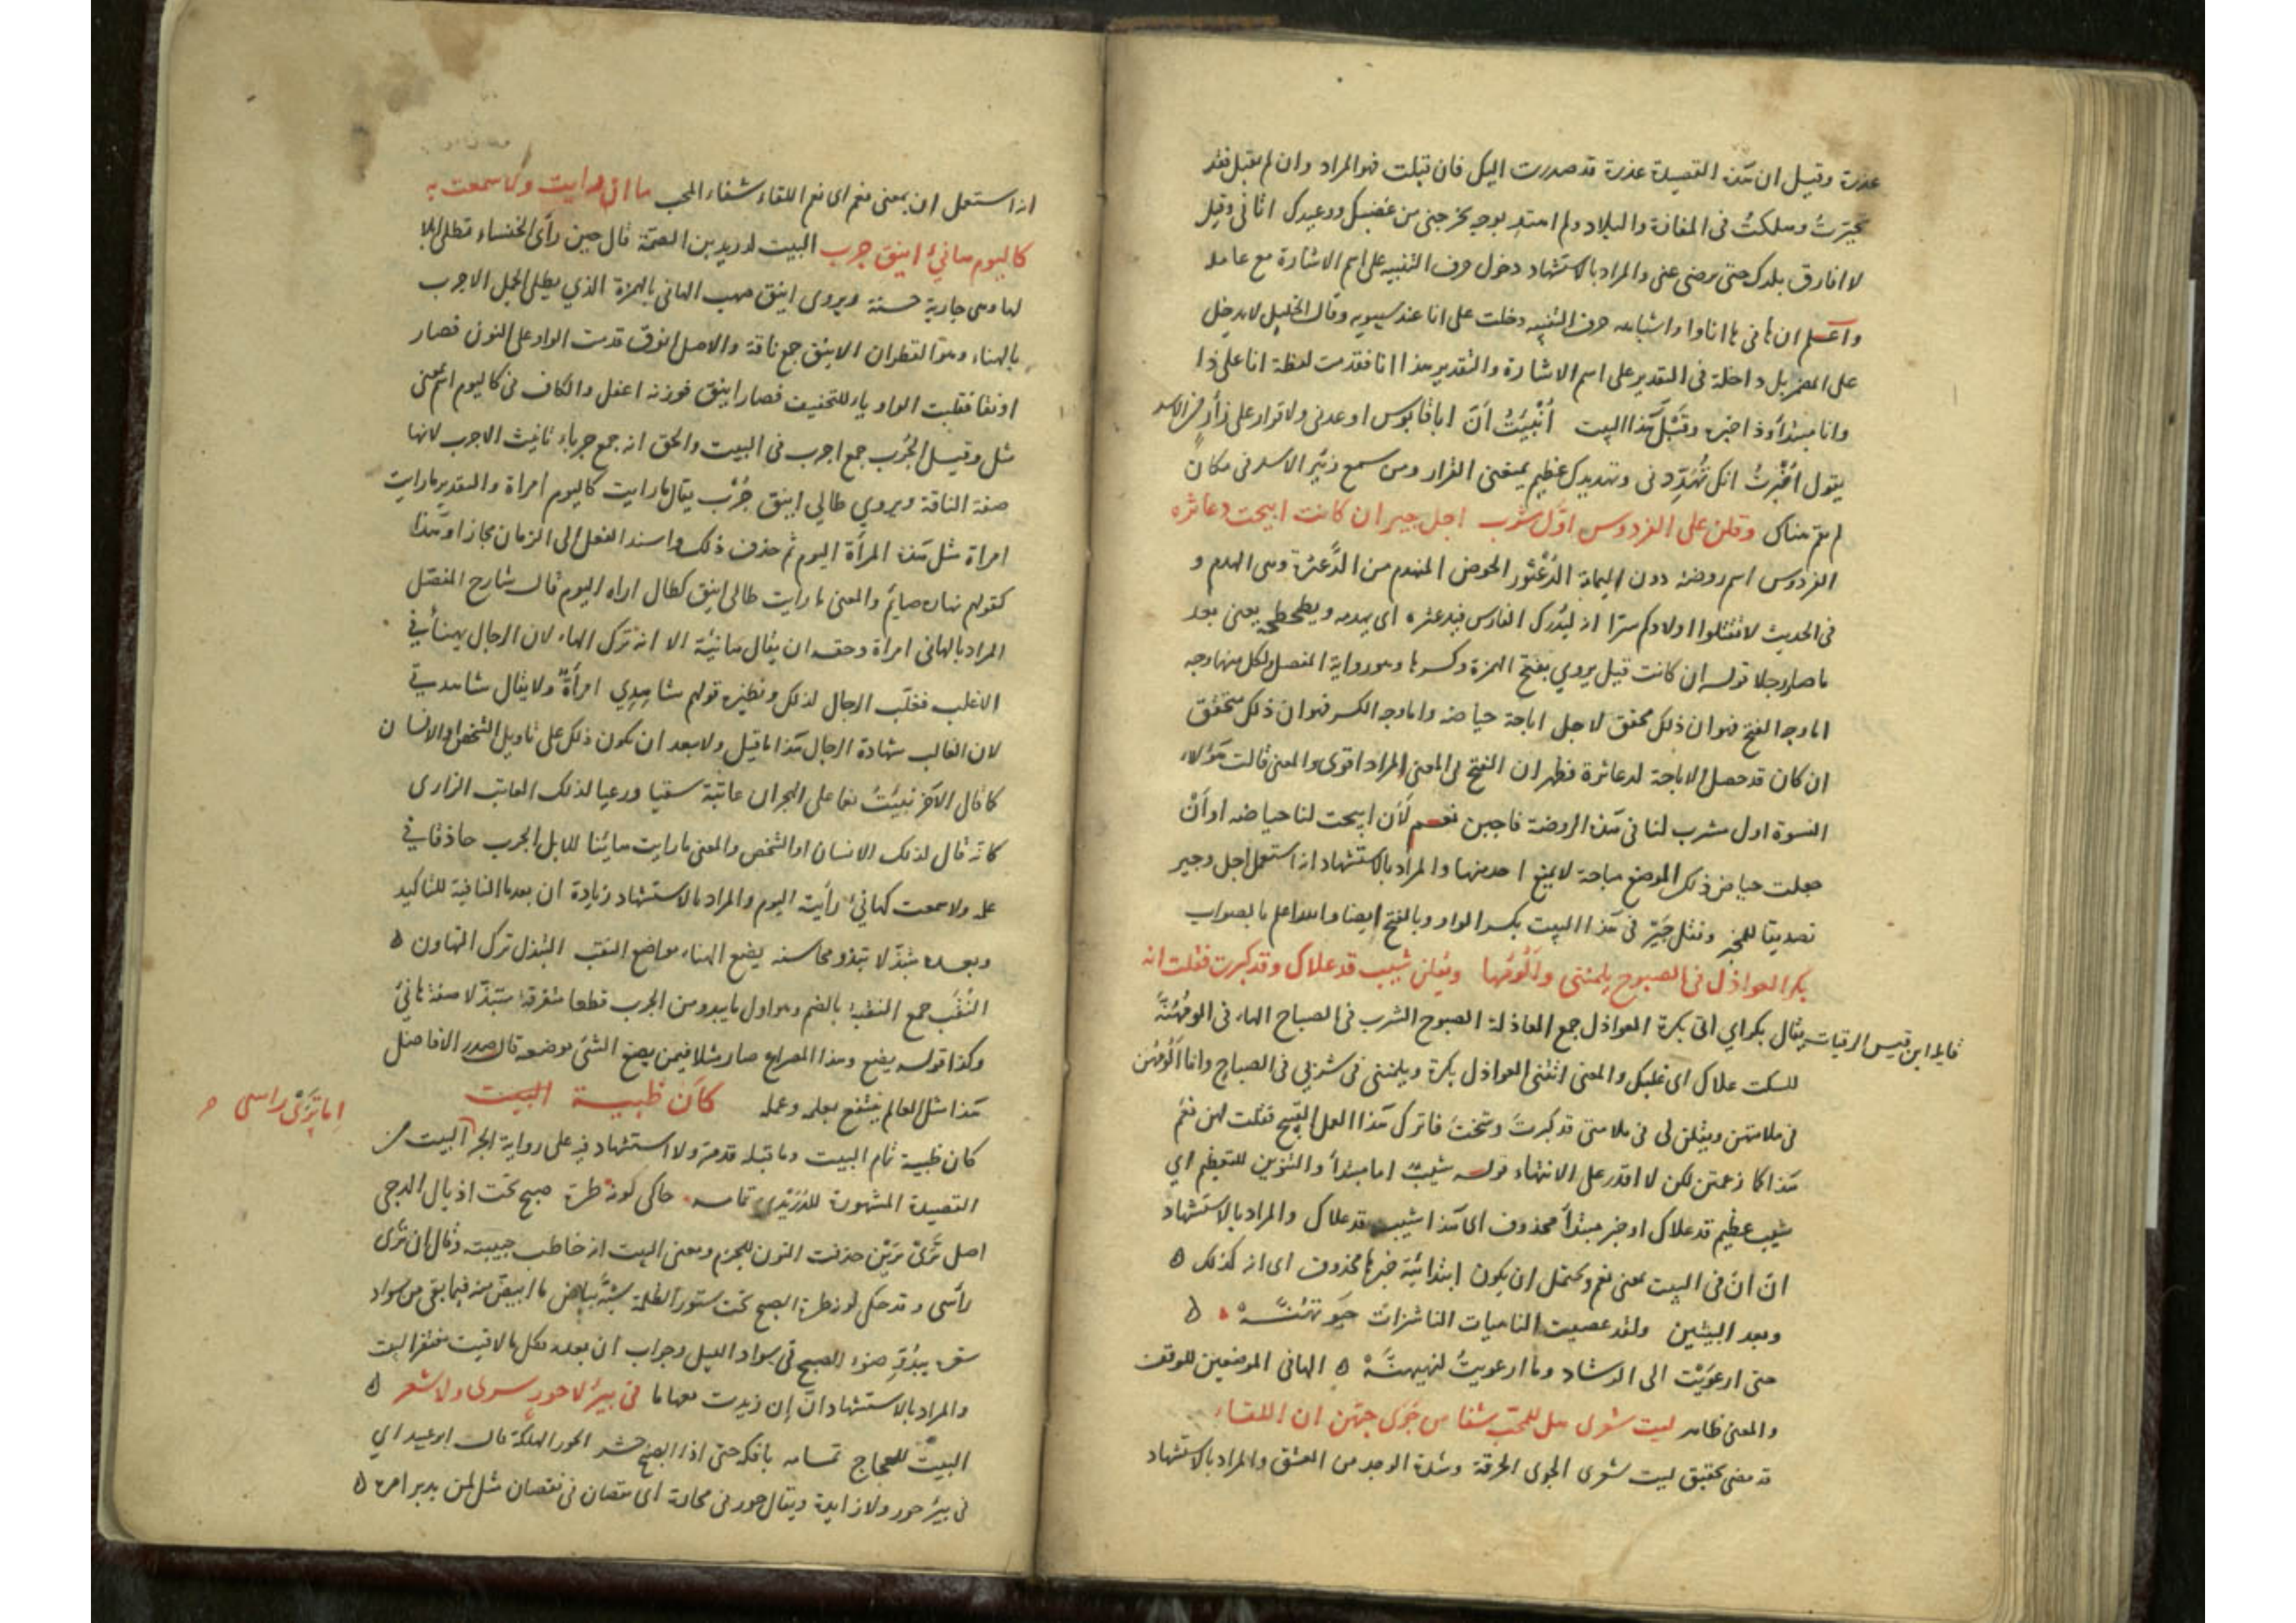 عذرة وقيل ان هذه القصيدة عذرة قد صدرت اليك فان قبلت فهو المراد وان لم يقبل فقد
تحيرتُ وسلكتُ فى المفازة والبلاد ولم اهتد بوجه يخرجنى من غضبك ووعيدك اتانى وقيل
لا افارق بلدك حتى يرضى عنى والمراد بالاستشهاد دخول حرف التنبيه على اسم الاشارة مع عامله
واعلم ان ها فى ها اناوا واشباهه حرف التنبيه دخلت على انا عند سيبويه وقال الخليل لا يدخل
على المضمر بل داخلة فى التقدير على اسم الاشارة والتقدير هذا انا فقدمت لفظة انا على ذا
وانا مبتدأ وذا خبره وقَبْلَ هذا البيت أُنْبِئتُ اَنَّ ابا قابوس اوعدنى ولا قرار على زأر من الاسد
يقول اُخْبِرْتُ انك تُهَدِّدنى وتهديدك عظيم يمنعنى القرار ومن سمع زئير الاسد فى مكان
لم يقم هناك وقلن على الفردوس اوّل مشرب اجل جير ان كانت ابيحت دعاثره
الفردوس اسم روضة دون اليمامة الدُعْثور الحوض المنهدم من الدَّعثرة وهى الهدم و
فى الحديث لا تقتلوا اولادكم سرّا انه ليُدْرك الفارس فيدعثره اى يهدمه ويطحطحه يعنى بعد
ما صار رجلا قوله ان كانت قيل يروي بفتح الهمزة وكسرها وهو رواية المفصل ولكل منهما وجه
اما وجه الفتح فهو ان ذلك محقق لاجل اباحة حياضه واما وجه الكسر فهو ان ذلك متحقق
ان كان قد حصل الاباحة لدعاثره فظهر ان الفتح فى المعنى المراد اقوى والمعنى قالت هؤلاء
النسوة اول مشرب لنا فى هذه الروضة فاجبن نعم لَأَن ابيحت لنا حياضه او اَنْ
جعلت حياض ذلك الموضع مباحة لا يمنع احد منها والمراد بالاستشهاد انه استعمل اجل وجير
تصديقا للمخبر ونقل جَيْرِ فى هذا البيت بكسر الراء وبالفتح ايضا والله اعلم بالصواب
بكر العواذل فى الصبوح يلمننى وأَلُومُها ويَقلن شيب قد علاك وقد كبرت فقلت انه
قايله ابن قيس الرقيات يقال بكر اي اتى بكرة العواذل جمع العاذلة الصبوح الشرب فى الصباح الهاء فى الومُهُنَّهْ
للسكت علاك اى غلبك والمعنى اتتنى العواذل بكرة ويلمننى فى شربى فى الصباح وانا اَلُومُهن
فى ملامتهن ويقلن لى فى ملامتى قد كبرتَ وشختَ فاترك هذا العمل القبيح فقلت لهن نعم
هذا كما زعمتن لكن لا اقدر على الانتهاء قوله شيبٌ اما مبتدأ والتنوين للتعظيم اي
شيب عظيم قد علاك او خبر مبتدأ محذوف اى هذا شيب قد علاك والمراد بالاستشهاد
انّ انّ فى البيت بمعنى نعم ويحتمل ان يكون ابتدائية خبرها محذوف اى انه كذلك ه
وبعد البيتين ولقد عصيت الناهيات الناشزات
حتى ارعَوَيْت الى الرشاد وما ارعويتُ لنهيهنَّهْ ه الهاء فى الموضعين للوقف
والمعنى ظاهر ليت شعرى هل للمحبّ شفا من جَوَى حبّهن ان اللقاء
قد مضى تحقيق ليت شعرى الجوى الحرقة وشدة الوجد من العشق والمراد بالاستشهاد
انه استعمل ان بمعنى نعم اى نعم اللقاء شفاء المحب ما ان رايت ولا سمعت به
كاليوم هانئ اينق جرب البيت لدريد بن الصمّة قال حين رأى الخنساء تطلى ابلا
لها وهى جارية حسنة ويروى اينق صهب الهانى بالهمزة الذي يطلى الجمل الاجرب
بالهناء وهو القطران الاينق جمع ناقة والاصل انوق قدمت الواو على النون فصار
اونقا فقلبت الواو ياء للتخفيف فصار اينق فوزنه اعفل والكاف فى كاليوم اسم بمعنى
مثل وقيل الجُرب جمع اجرب فى البيت والحق انه جمع جرباء تانيث الاجرب لانها
صفة الناقة ويروي طالي اينق جُرْب يقال ما رايت كاليوم امراة والتقدير ما رايت
امراة مثل هذه المرأة اليوم ثم حذف ذلك واسند الفعل الى الزمان مجازا وهذا
كقولهم نهاره صائم والمعنى ما رايت طالى اينق كطال اراه اليوم قال شارح المفصّل
المراد بالهانى امراة وحقه ان يقال هانئة الا انه ترك الهاء لان الرجال يهنأ في
الاغلب فغلّب الرجال لذلك ونظيره قولهم شاهدي امرأةٌ ولا يقال شاهدتي
لان الغالب شهادة الرجال هذا ما قيل ولا يبعد ان يكون ذلك على تاويل الشخص او الانسان
كما قال الآخر نبيتُ نعما على الهجران عاتبة سقيا ورعيا لذلك العاتب الزارى
كانّه قال لذلك الانسان او الشخص والمعنى ما رايت هانئا للابل الجرب حاذقا في
علمه ولا سمعت كهانئ رأيته اليوم والمراد بالاستشهاد زيادة ان بعد ما النافية للتاكيد
وبعده متبذّلا تبدو محاسنه يضع الهناء مواضع النقب التبذل ترك التهاون ه
النُقَب جمع النقبة بالضم وهو اول ما يبدو من الجرب قطعا متفرقة متبذّلا صفة هانئ
وكذا قوله يضع وهذا المصراع صار مثلا فيمن يضع الشئ موضعه قال صدر الافاضل
هذا مثل العالم ينتفع بعلمه وعمله كأن ظبية البيت
كان ظبية تمام البيت وما قبله قد مرّ ولا استشهاد فيه على رواية الجر البيت من
اما تَرَىْ راسى
القصيدة المشهورة للدُرَيْدى تمامه حاكى لونه طرة صبح تحت اذيال الدجى
اصل تَرَىْ تَرَيْن حذفت النون للجزم ومعنى البيت انه خاطب حبيبته وقال ان تَرَى
رأسى وقد حكى لونه طرة الصبح تحت ستور الظلمة شبّه بياض ما ابيض منه فيما بقى من سواد
شعره يبدُوِّ ضوء الصبح فى سواد الليل وجواب ان بعده فكل ما لاقيت مغتفر البيت
والمراد بالاستشهاد انّ إن زيدت معها ما فى بئر لا حورٍ سرى ولا شعر ه
البيت للعجاج تمامه بافكه حتى اذا الصبح جشر الحور الهلكة قال ابو عبيد اي
فى بئر حور ولا زايدة ويقال حور فى محارة اى نقصان فى نقصان مثل لمن يدبر امره ه